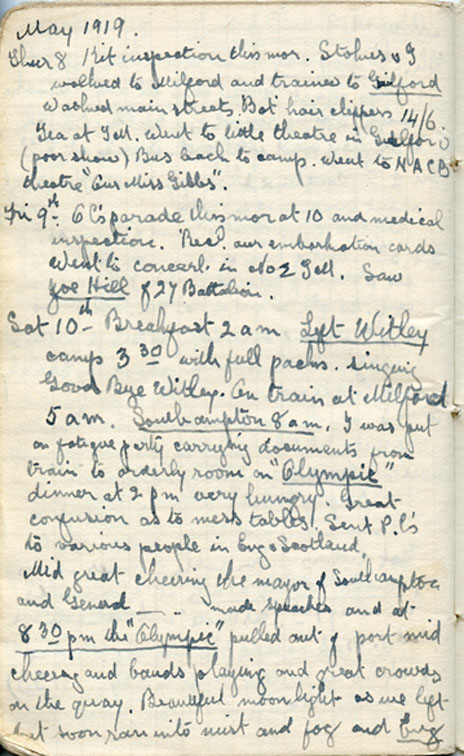 May 1919.
Thur 8 Kit inspection this mor. Stokes & I
walked to Milford and trained to Gilford
Walked main streets. Bot hair clippers 14/6.
Tea at YM. Went to little theatre in Guilford
(poor show) Bus back to camp. Went to NACB
theatre "Our Miss Gibbs".
Fri 9th 6 C's parade this mor at 10 and medical
inspection. Rec'd our embarkation cards
Went to concert in No 2 YM. Saw
Joe Hill of 27 Battalion.
Sat 10th Breakfast 2 am Left Witley
camp 3 30 with full packs. singing
Good Bye Witley. On train at Milford
5 am. Southampton 8 am, I was put
on fatigue party carrying documents from
train to orderly room on "Olympic"
dinner at 2 pm very hungry. Great
confusion as to mess tables. Sent P.C's
to various people in Eng & Scotland.
Mid great cheering the mayor of Southampton
and General — . . made speeches and at
8 30 pm the "Olympic" pulled out of port mid
cheering and bands playing and great crowds
on the quay. Beautiful moonlight as we left
but soon ran into mist and fog and Eng